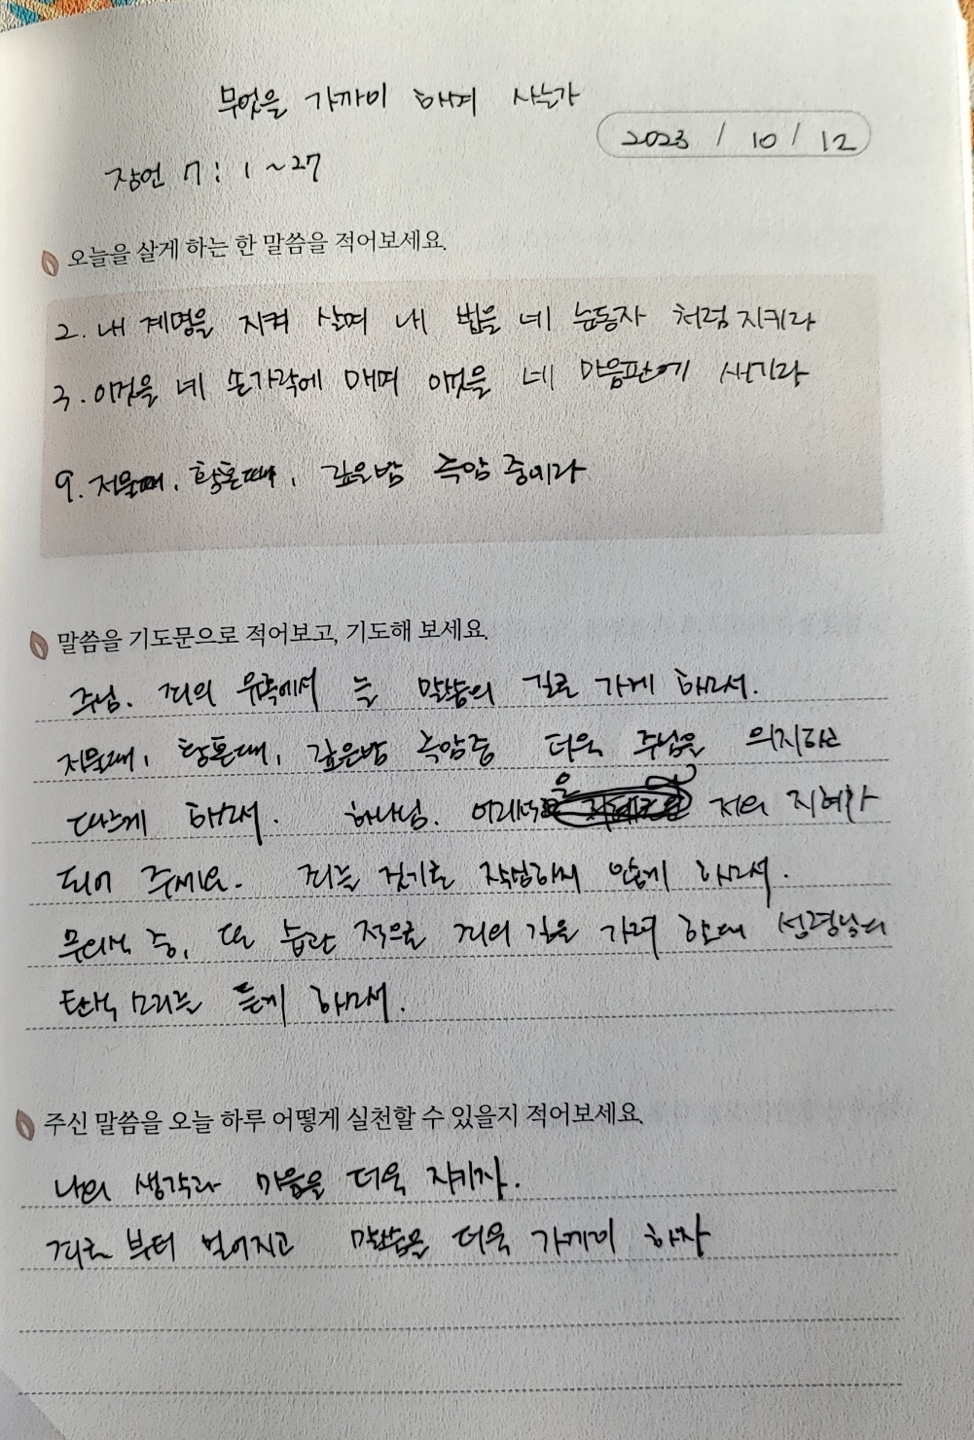 무엇을 가까이 하며 사는가
2023 / 10 / 12
잠언 7 : 1 ~ 27
오늘을 살게 하는 한 말씀을 적어보세요.
2. 내 계명을 지켜 살며 내 법을 네 눈동자 처럼 지키라
3. 이것을 네 손가락에 매며 이것을 네 마음판에 새기라
9. 저물때, 황혼때, 깊은밤 흑암 중이라
말씀을 기도문으로 적어보고, 기도해 보세요.
주님. 죄의 유혹에서 늘 말씀의 길로 가게 하소서.
저물때, 황혼때, 깊은밤 흑암중 더욱 주님을 의지하는
하소서. 하나님. 저의 지혜가
되어 주세요. 죄를 짓기로 작심하지 않게 하소서.
무의식 중, 또 습관 적으로 죄의 길을 가려 할때 성령님의
탄식 소리를 듣게 하소서.
주신 말씀을 오늘 하루 어떻게 실천할 수 있을지 적어보세요.
나의 생각과 마음을 더욱 지키자.
죄로 부터 멀어지고 말씀을 더욱 가까이 하자